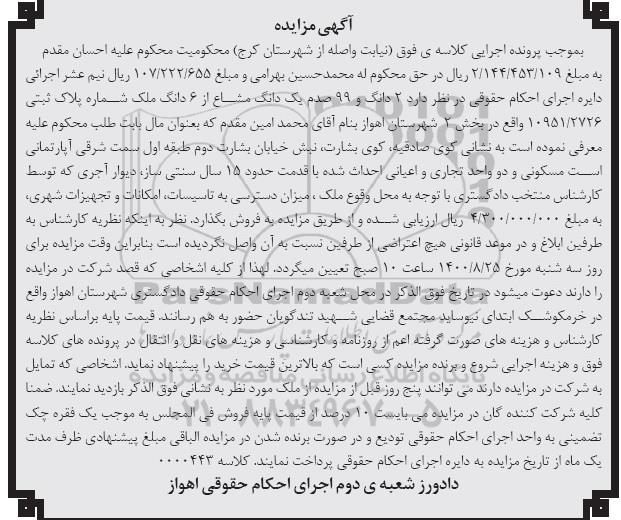 آگهی مزایده
بموجب پرونده اجرایی کلاسه ی فوق (نیابت واصله از شهرستان کرج) محکومیت محکوم علیه احسان مقدم
به مبلغ ۲/۱۴۴/۴۵۳/۱۰۹ ریال در حق محکوم له محمدحسین بهرامی و مبلغ ۱۰۷/۲۲۲/۶۵۵ ریال نیم عشر اجرائی
دایره اجرای احکام حقوقی در نظر دارد ۲ دانگ و ۹۹ صدم یک دانگ مشاع از ۶ دانگ ملک شماره پلاک ثبتی
۱۰۹۵۱/۲۷۲۶ واقع در بخش ۲ شهرستان اهواز بنام آقای محمد امین مقدم که بعنوان مال بابت طلب محکوم علیه
معرفی نموده است به نشانی کوی صادقیه، کوی بشارت، نبش خیابان بشارت دوم طبقه اول سمت شرقی آپارتمانی
است مسکونی و دو واحد تجاری و اعیانی احداث شده با قدمت حدود ۱۵ سال سنتی ساز، دیوار آجری که توسط
کارشناس منتخب دادگستری با توجه به محل وقوع ملک ، میزان دسترسی به تاسیسات، امکانات و تجهیزات شهری،
به مبلغ ۴/۳۰۰/۰۰۰/۰۰۰ ریال ارزیابی شده و از طریق مزایده به فروش بگذارد. نظر به اینکه نظریه کارشناس به
طرفین ابلاغ و در موعد قانونی هیچ اعتراضی از طرفین نسبت به آن واصل نگردیده است بنابراین وقت مزایده برای
روز سه شنبه مورخ ۱۴۰۰/۸/۲۵ ساعت ۱۰ صبح تعیین میگردد. لهذا از کلیه اشخاصی که قصد شرکت در مزایده
را دارند دعوت میشود در تاریخ فوق الذکر در محل شعبه دوم اجرای احکام حقوقی دادگستری شهرستان اهواز واقع
در خرمکوشک ابتدای نیوساید مجتمع قضایی شهید تندگویان حضور به هم رسانند. قیمت پایه براساس نظریه
کارشناس و هزینه های صورت گرفته اعم از روزنامه و کارشناسی و هزینه های نقل و انتقال در پرونده های کلاسه
فوق و هزینه اجرایی شروع و برنده مزایده کسی است که بالاترین قیمت خرید را پیشنهاد نماید. اشخاصی که تمایل
به شرکت در مزایده دارند می توانند پنج روز قبل از مزایده از ملک مورد نظر به نشانی فوق الذکر بازدید نمایند. ضمنا
کلیه شرکت کننده گان در مزایده می بایست ۱۰ درصد از قیمت پایه فروش فی المجلس به موجب یک فقره چک
تضمینی به واحد اجرای احکام حقوقی تودیع و در صورت برنده شدن در مزایده الباقی مبلغ پیشنهادی ظرف مدت
یک ماه از تاریخ مزایده به دایره اجرای احکام حقوقی پرداخت نمایند. کلاسه ۰۰۰۰۴۴۳
دادورز شعبه ی دوم اجرای احکام حقوقی اهواز